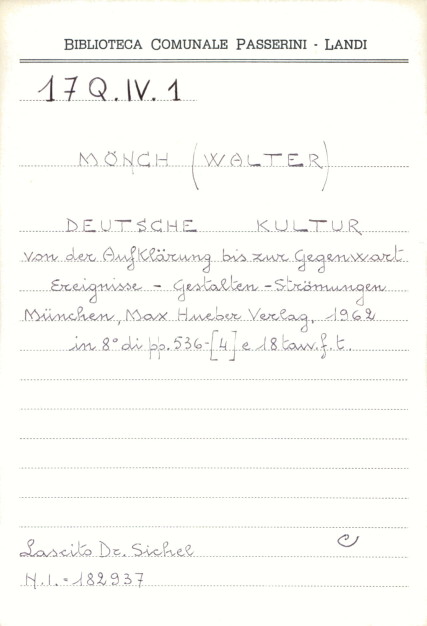 BIBLIOTECA COMUNALE PASSERINI - LANDI
17 Q. IV. 1
MÖNCH (WALTER)
DEUTSCHE KULTUR
von der Aufklärung bis zur Gegenwart
Ereignisse - Gestalten - Strömungen
München, Max Hueber Verlag, 1962
in 8° di pp. 536-[4] e 18 tav. f. t.
Lascito Dr. Sichel
N.I. = 182937